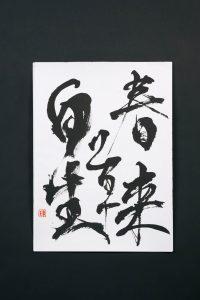 春來
草
自生